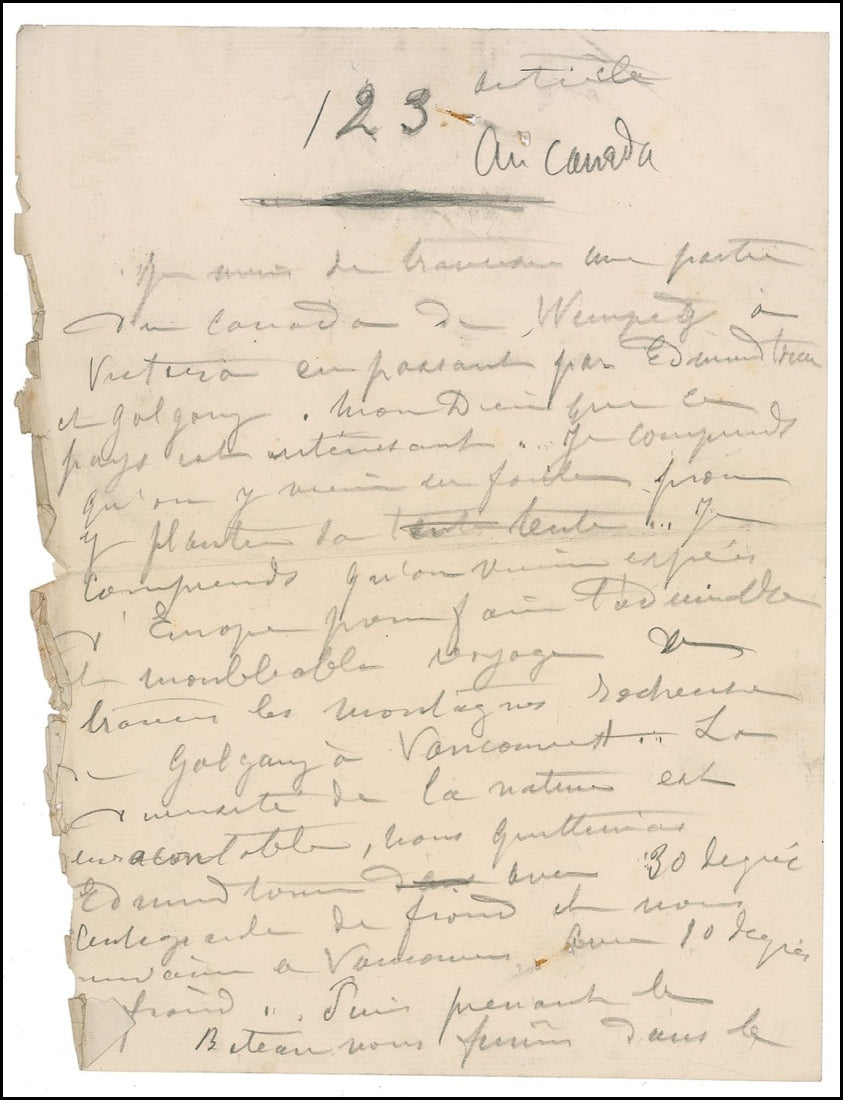 article
123
Au Canada
Je viens de traverser une partie
du Canada de Winnpeg à
Victoria en passant par Edmundtown
et Galgary. Mon Dieu que ce
pays est intéressant... Je comprends
qu'on y vienne en foule pour
y planter sa tente tente... Je
comprends qu'on vienne exprès
d'Europe pour faire l'admirable
et inoubliable voyage de
travers les montagnes rocheuses
de Galgary à Vancouvert... La
diversité de la nature est
inracontable, nous quittions
Edmundtown avec 30 degrés
centegrade de froid et nous
à Vancouver avec 10 degrés
froid... Puis prenant le
Bateau nous fumes dans le